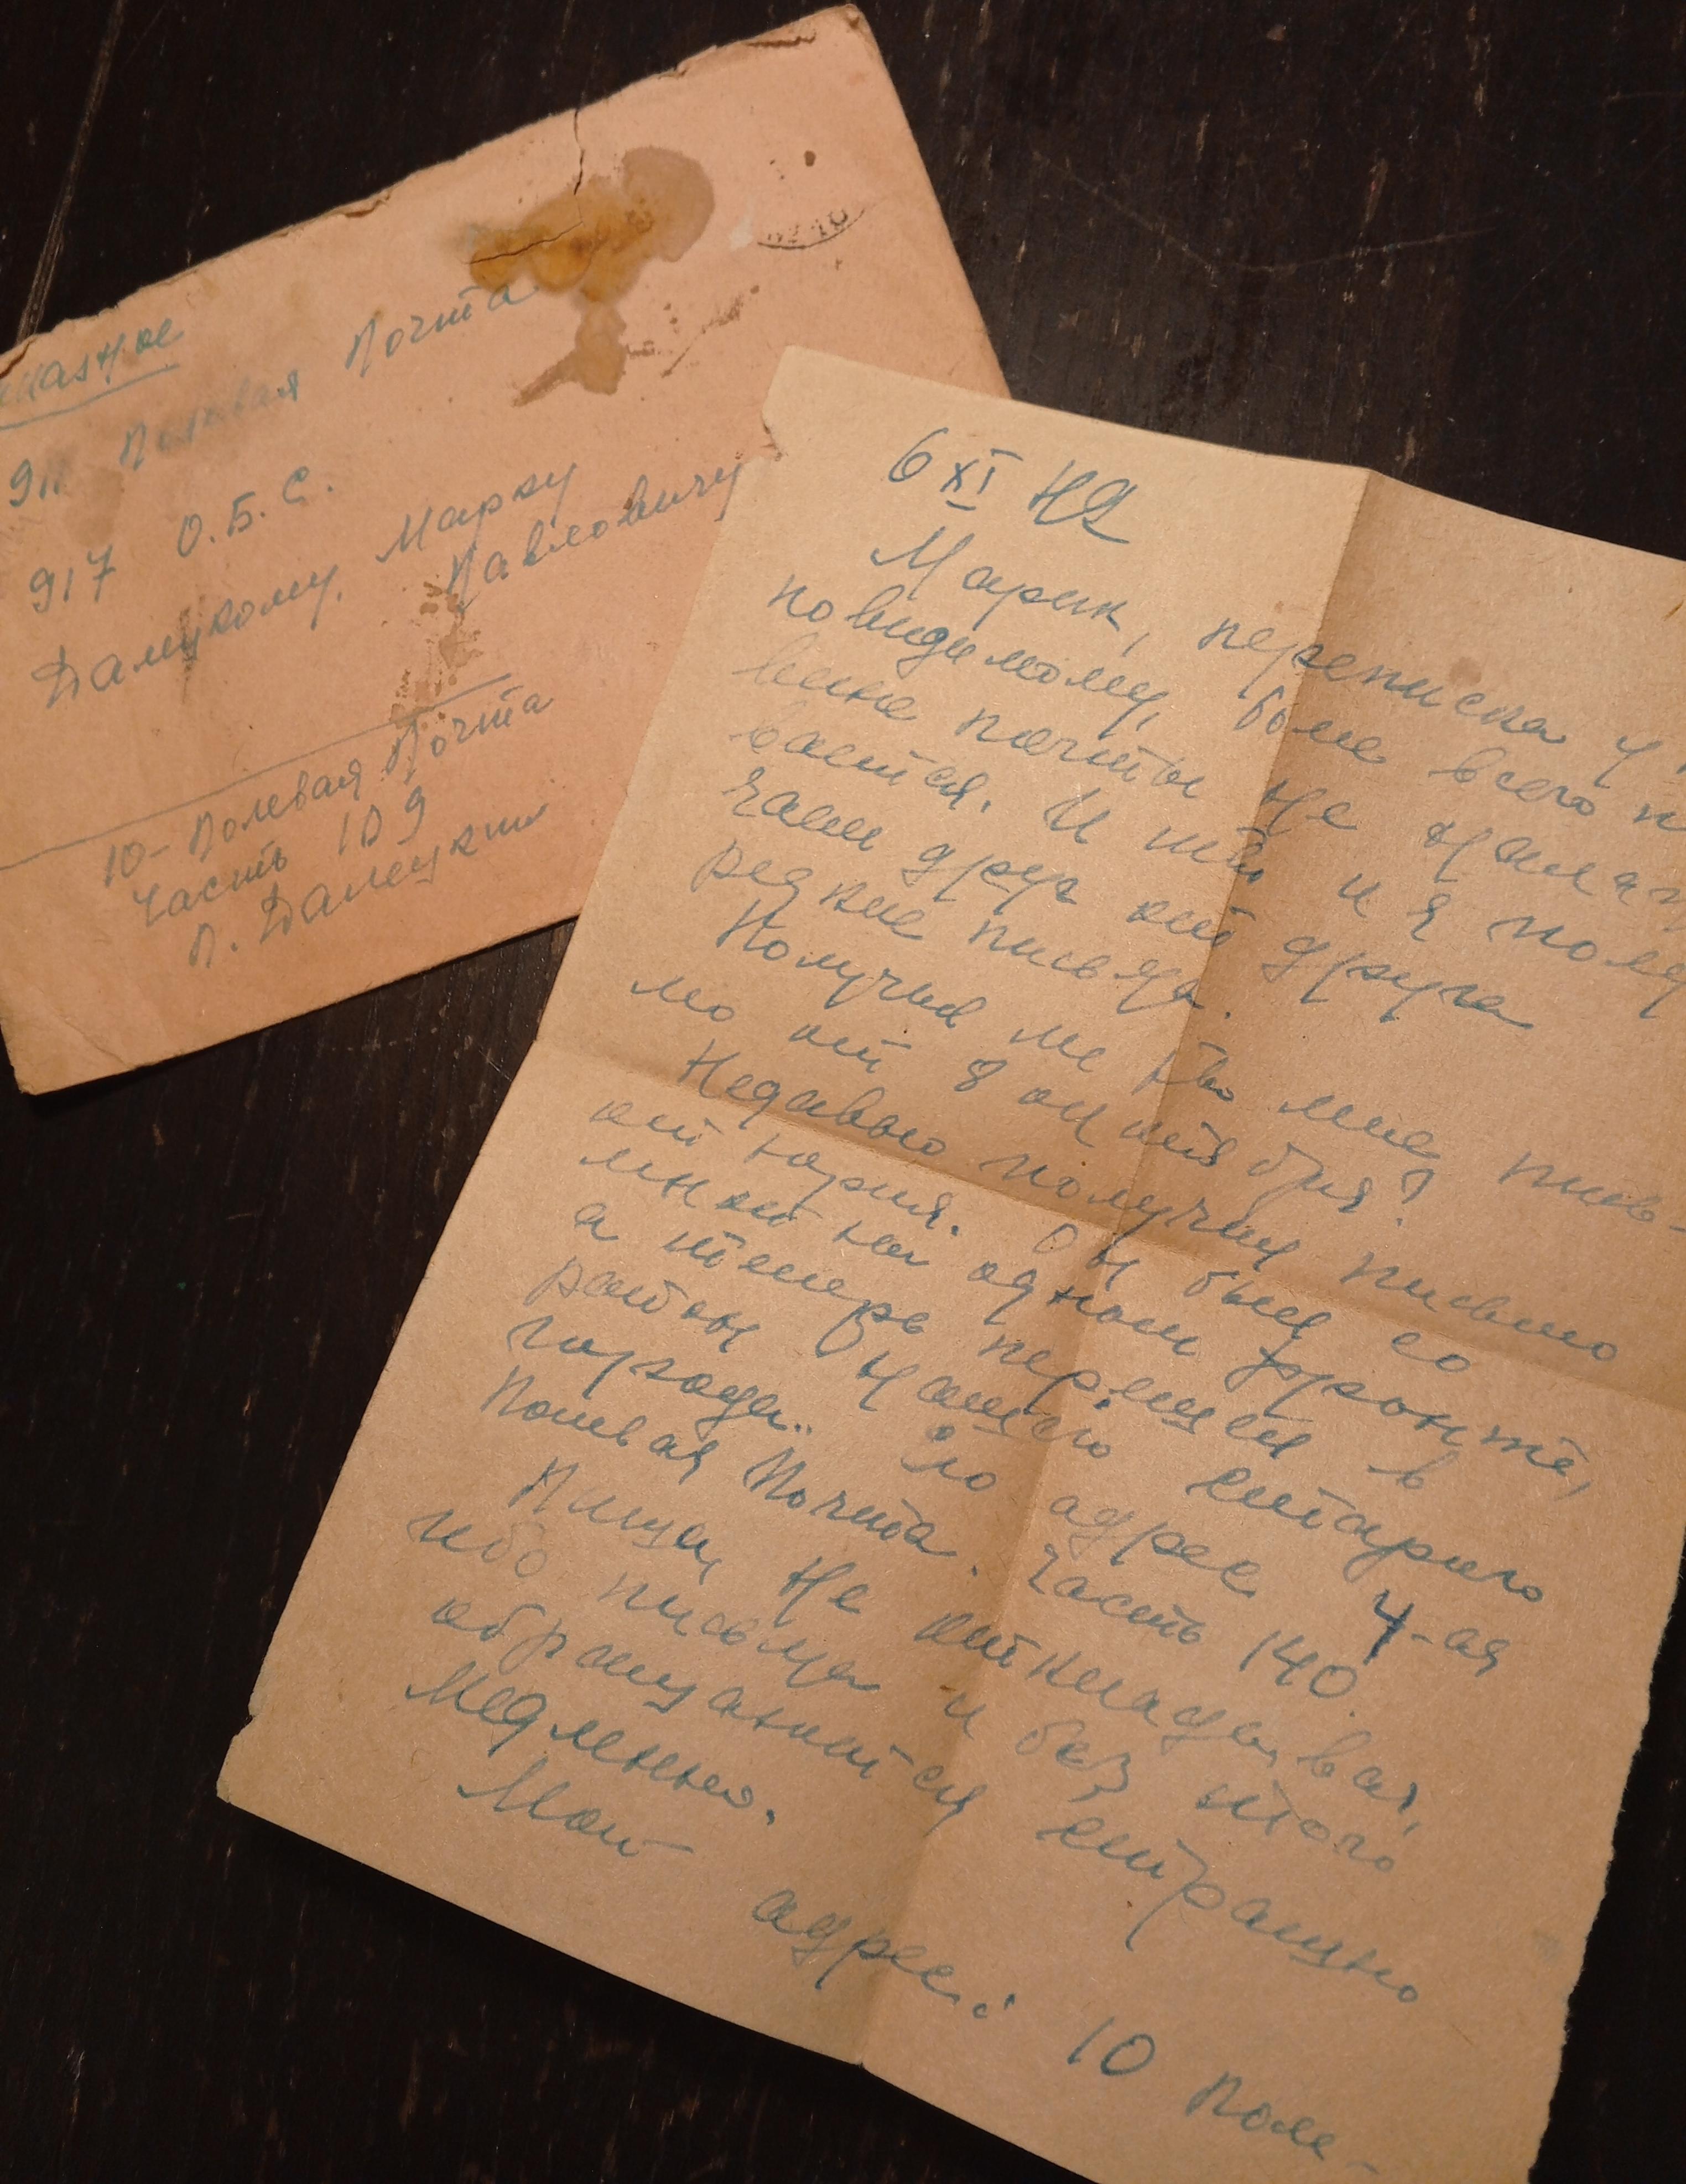 Полевая Почта
917 О.Б.С.
Далецкому, Марку
Павловичу
10-Полевая Почта
Часть 109
П. Далецкий
6 XI 42
Марик, переписка у
повидимому, боле всего
вине почты не налаж
вается. И ты и я полу
чаем друг от друга
редкие письма.
Получил ли ты мое пись-
мо от 8 октября?
Недавно получил письмо
от Юрия. Он был со
мной на одном фронте,
а теперь перешел в
район нашего старого
города. Его адрес 4-ая
Полевая Почта. Часть 140.
Пиши, не откладывая,
ибо письма и без того
обращаются страшно
медленно.
Мой адрес: 10 Поле-